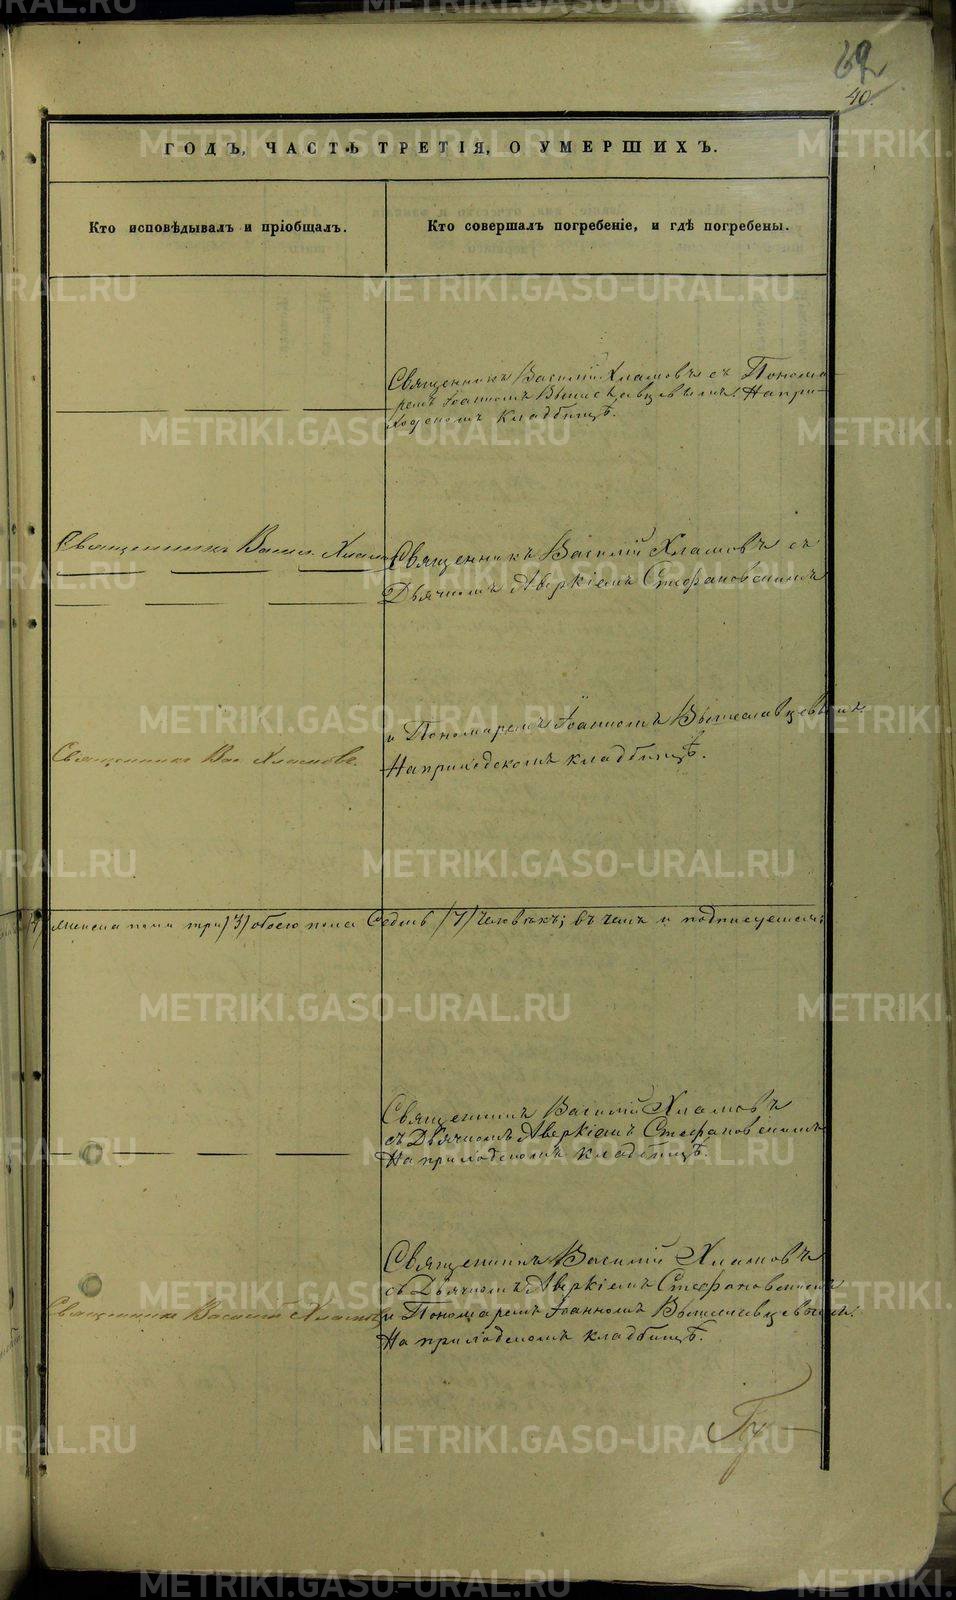 69
40.
ГОДЪ, ЧАСТЬ ТРЕТІЯ, О УМЕРШИХЪ.
Кто исповѣдывалъ и пріобщалъ.
Кто совершалъ погребеніе, и гдѣ погребены.
Священникъ Василій Хламовъ съ Понома
ремъ Іоанномъ Вышеславцевымъ. На при-
ходскомъ кладбищѣ.
Священникъ Васил. Хламовъ
Священникъ Василій Хламовъ съ
Дьячкомъ Аверкіемъ Стефановскимъ
и Пономаремъ Іоанномъ Вышеславцевымъ
На приходскомъ кладбищѣ.
Священникъ Вас Хламовъ.
женска пола три /3/ обоего пола Седмь /7/ человѣкъ; въ чемъ и подписуемся:
Священникъ Василій Хламовъ
съ Дьячкомъ Аверкіемъ Стефановскимъ
На приходскомъ кладбищѣ.
Священникъ Василій Хламовъ
Священникъ Василій Хламовъ
съ Дьячкомъ Аверкіемъ Стефановскимъ
и Пономаремъ Іоанномъ Вышеславцевымъ.
На приходскомъ кладбищѣ.
METRIKI.GASO-URAL.RU